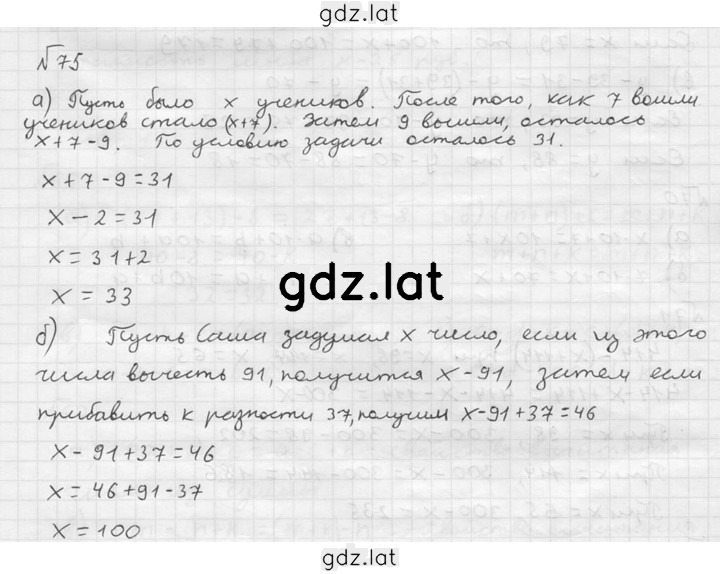 gdz.lat
№75
а) Пусть было х учеников. После того, как 7 вошли
учеников стало (х+7). Затем 9 вышли, осталось
х+7-9. По условию задачи осталось 31.
х+7-9=31
х-2=31
х=31+2
х=33
gdz.lat
б) Пусть Саша задумал х число, если из этого
числа вычесть 91, получится х-91, затем если
прибавить к разности 37, получим х-91+37=46
х-91+37=46
х=46+91-37
х=100
gdz.lat